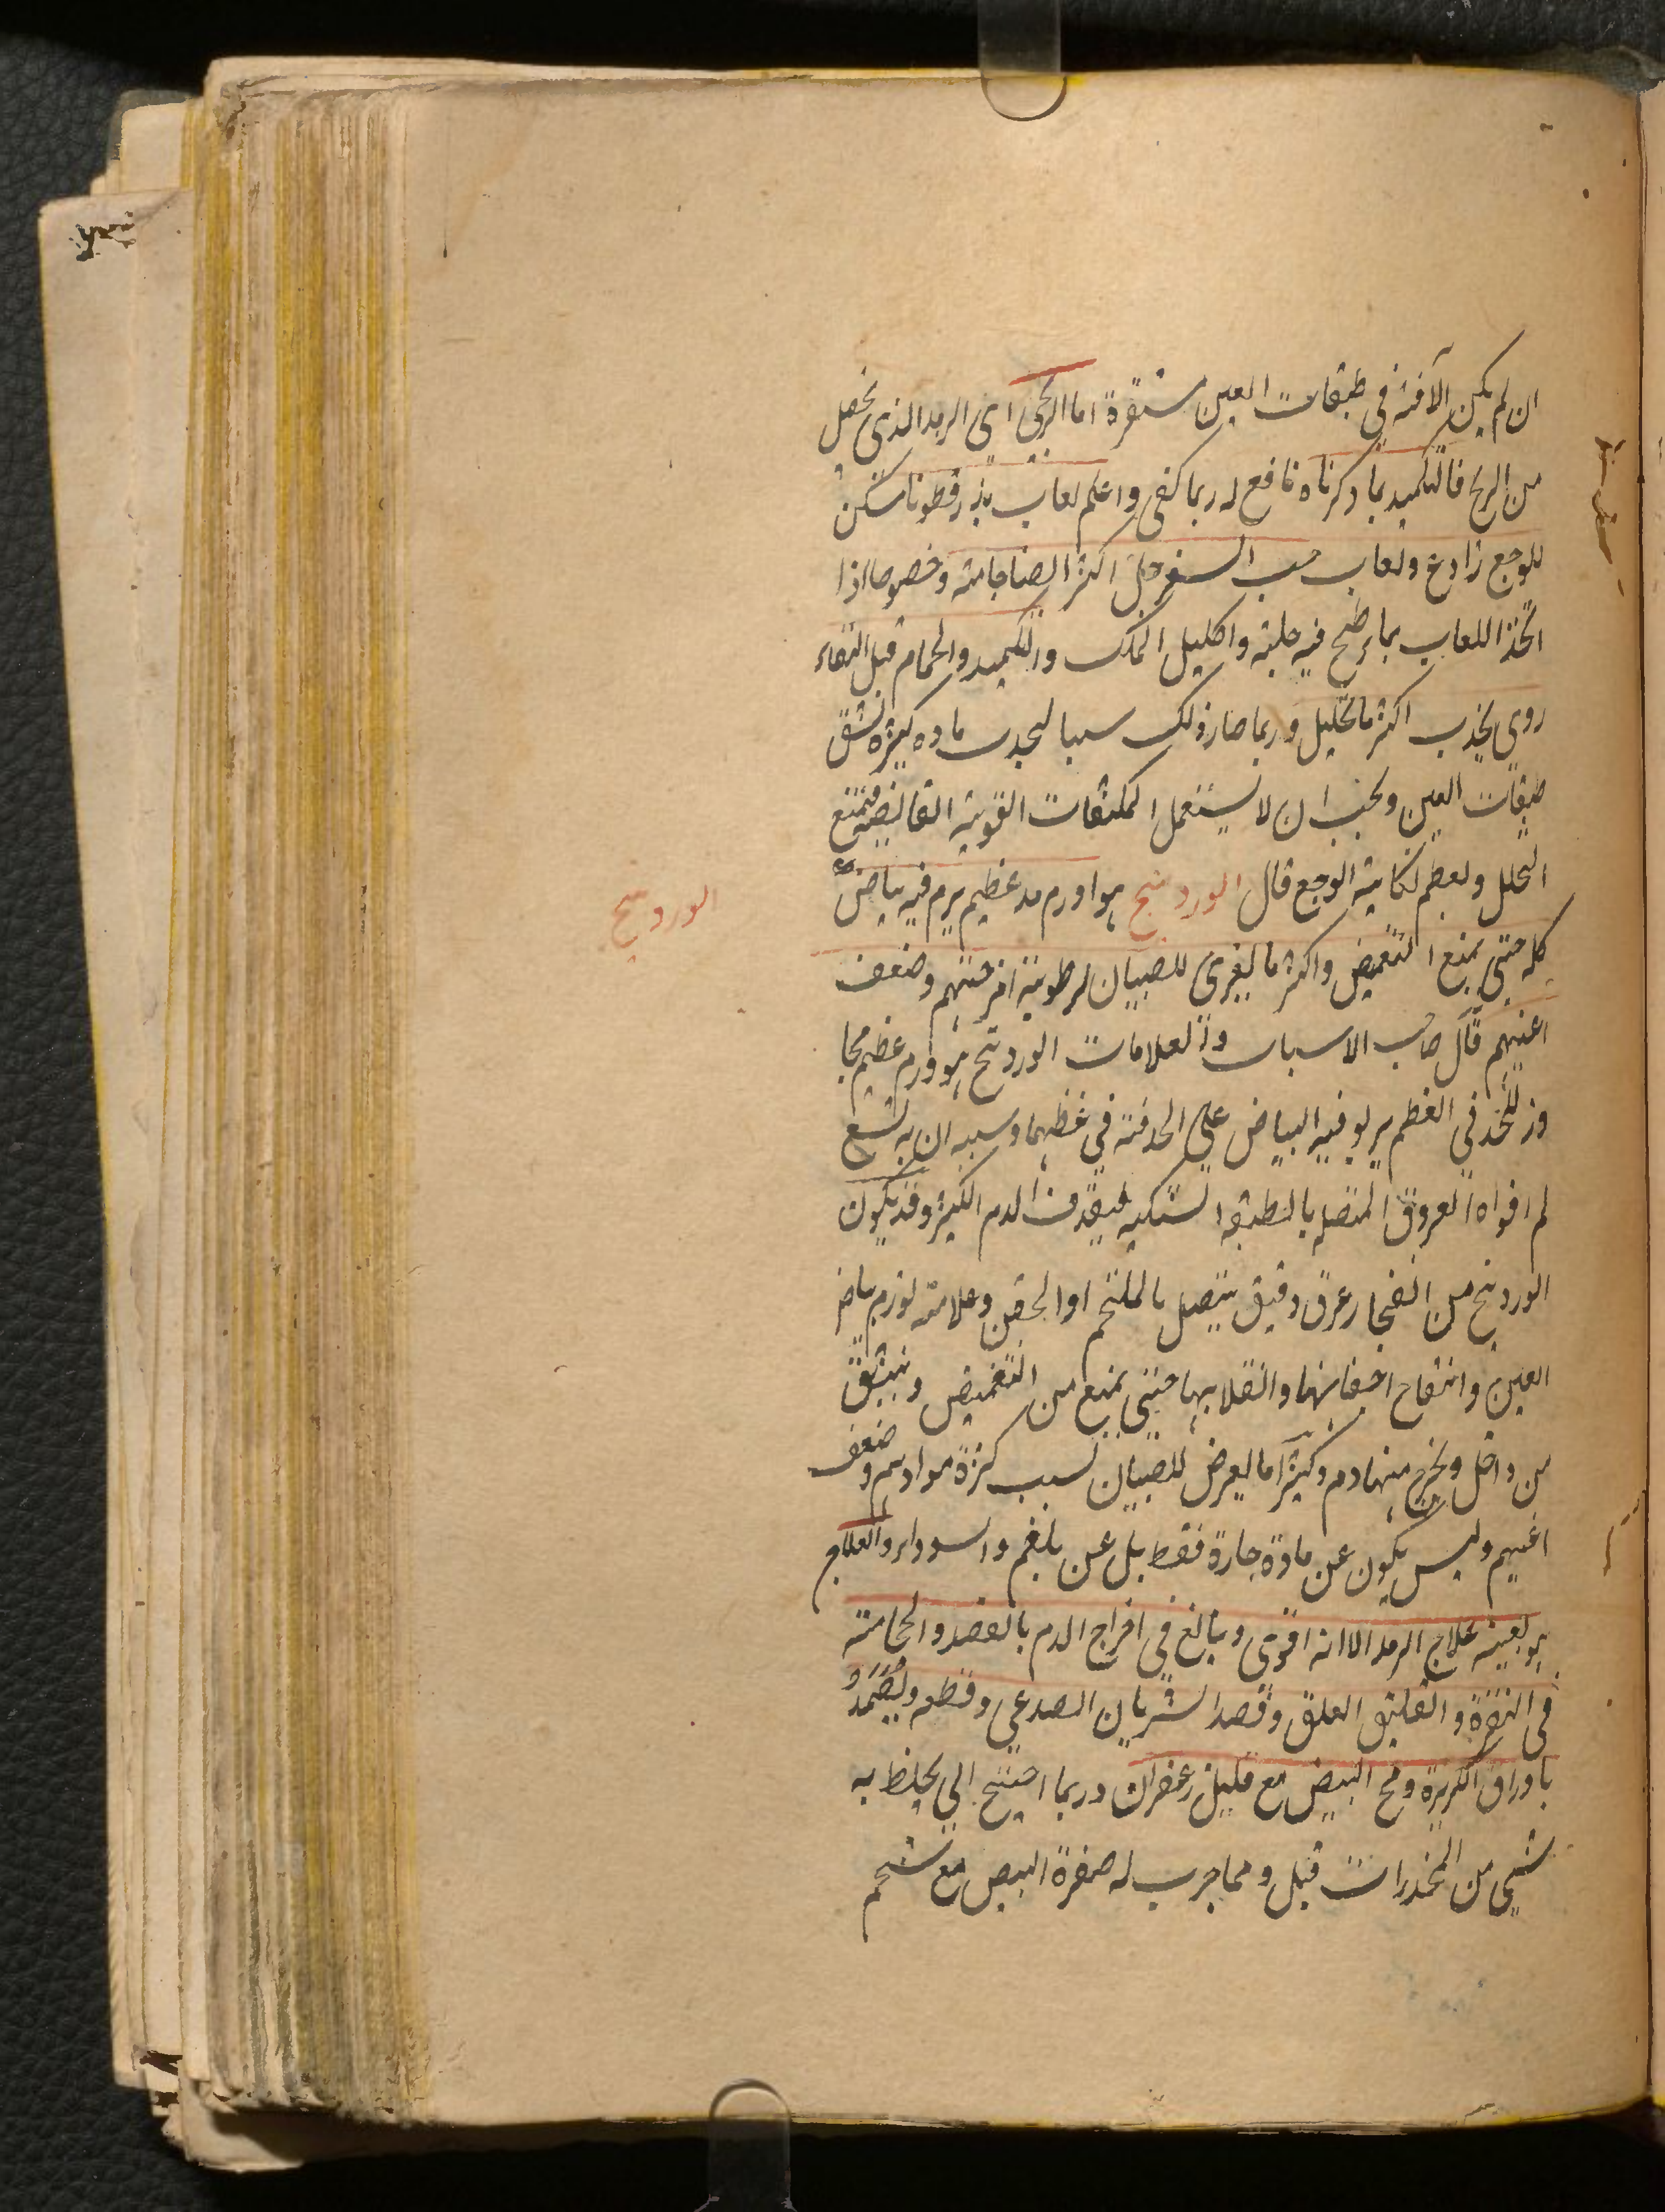 ان لم يكن الآفة في طبقات العين مستقرة اما الريحي اي الرمد الذي يحصل
من الريح فالتكميد بما ذكرناه نافع له ربما كفى واعلم لعاب بذر قطونا مسكن
للوجع رادع ولعاب حب السفرجل اكثر انضاجا منه وخصوصا اذا
اتخذ اللعاب بماء طبخ فيه حلبة واكليل الملك والتكميد والحمام قبل النقاء
ردي يجذب اكثر ما تحليل وربما صار ذلك سببا لجذب ماده كثيره تشق
طبقات العين ويجب ان لا يستعمل المكثفات القوية القابضة فتمنع
التحلل ولعظم نكاية الوجع قال الوردينج هو اورم مد عظيم يرم فيه بياض
كله حتى يمنع التغميض واكثر ما يعرى للصبيان لرطوبة امزجتهم وضعف
اعينهم قال صاحب الاسباب والعلامات الوردينج هو ورم عظيم مجا
وز للحد في العظم يربو فيه البياض على الحدقة في عظمها وسببه ان به تتسع
لم افواه العروق المتصله بالطبقه الشبكيه فيقذف الدم الكثير وقد يكون
الوردينج من انفجار عرق دقيق يتصل بالملتحم او الجفن وعلامته تورم بياض
العين وانتفاخ اجفانها وانقلابها حتى يمنع من التغميض وينشق
من داخل ويخرج منها دم وكثيرا ما يعرض للصبيان لسبب كثرة موادهم وضعف
اعينهم وليس يكون عن مادة حارة فقط بل عن بلغم والسوداء والعلاج
هو بعينه علاج الرمد الا انه اقوى ويبالغ في اخراج الدم بالفصد والحجامة
في النقرة والتعليق العلق وفصد الشريان الصدعي وقطعه ويُضَمَّد
باوراق الكزبرة ومخ البيض مع قليل زعفران وربما احتيج الى يخلط به
شيي من المخدرات قبل ومما جرب له صفرة البيض مع شحم
الوردينج